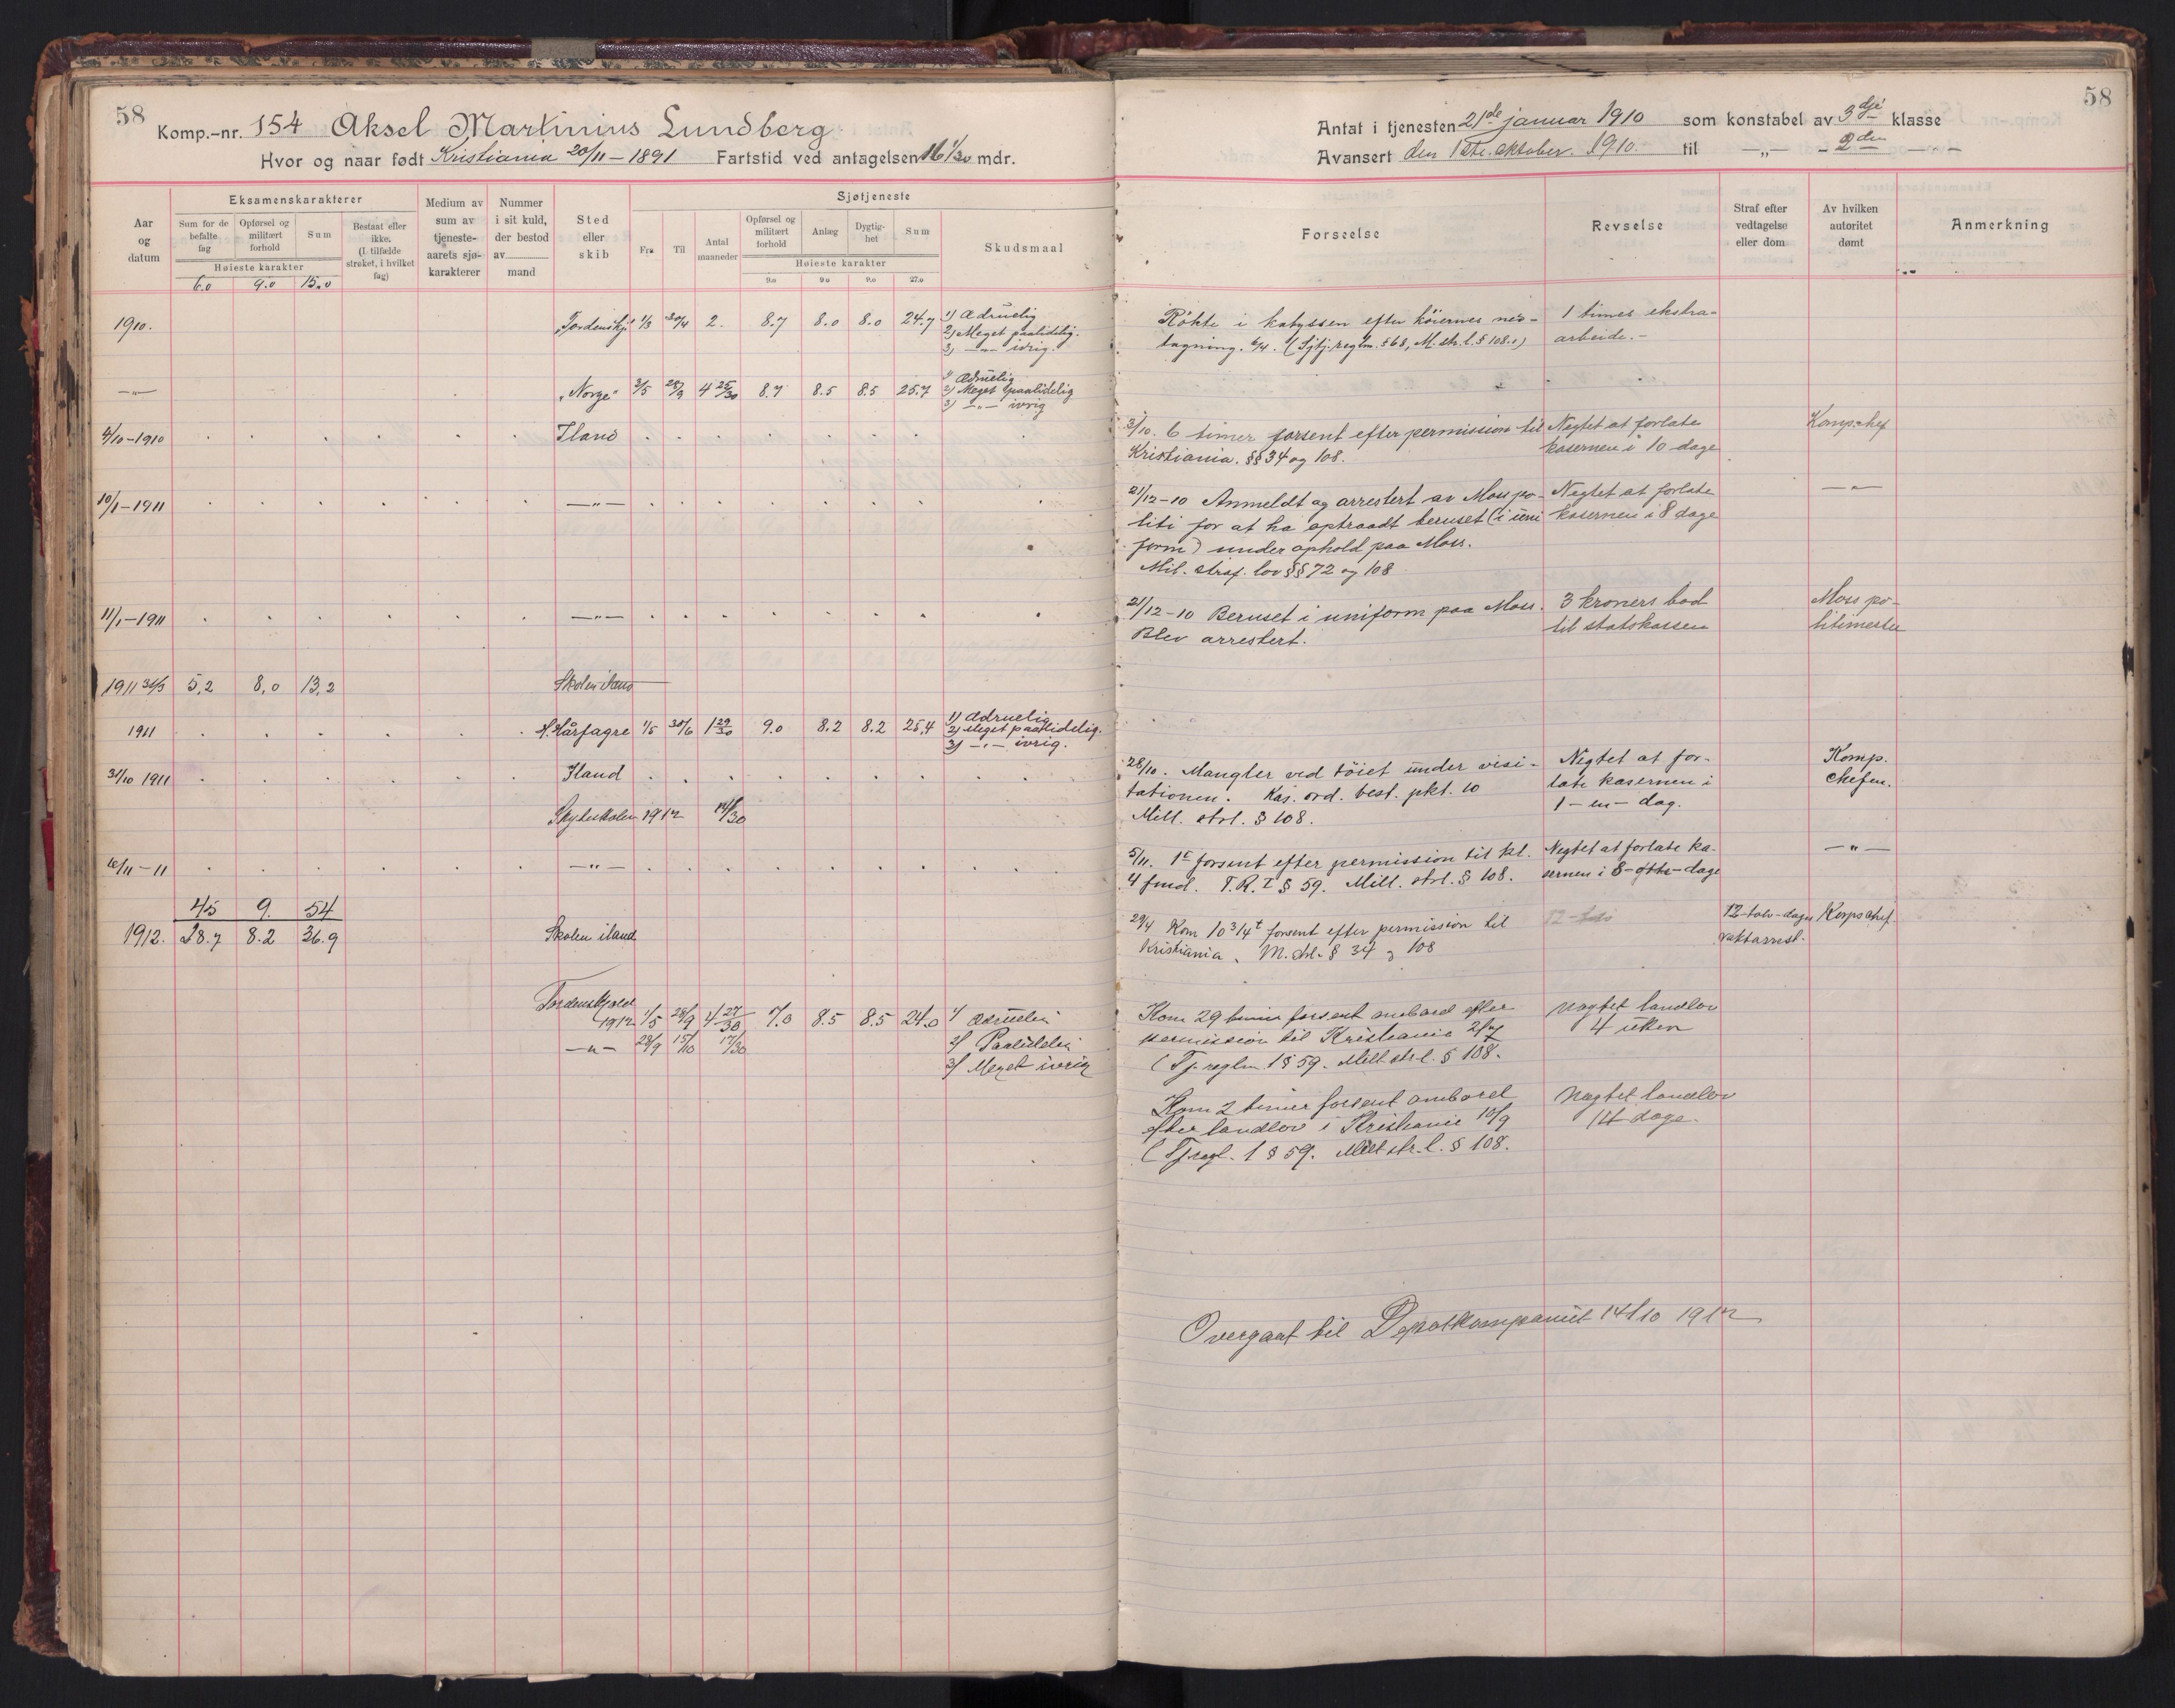 58
Komp.-nr. 154 Aksel Martinius Lundberg
Hvor og naar født Kristiania 20/11 – 1891 Fartstid ved antagelsen 16 1/30 mdr.
Aar og datum
Eksamenskarakterer
Sum for de befalte fag
Opførsel og militært forhold
Sum
Bestaat eller ikke. (I tilfælde strøket, i hvilket fag)
Høieste karakter
6.0 9.0 15.0
Medium av sum av tjeneste-aarets sjø-karakterer
Nummer i sit kuld, der bestod av mand
Sted eller skib
Sjøtjeneste
Fra Til Antal maaneder
Opførsel og militært forhold
Anlæg
Dygtig-het
Sum
Høieste karakter
9.0 9.0 9.0 27.0
Skudsmaal
1910. "Tordenskj." 1/3 30/4 2. 8.7 8.0 8.0 24.7 1) Ædruelig
2) Meget paalidelig.
3) —"— ivrig.
—"— "Norge" 3/5 28/9 4 25/30 8.7 8.5 8.5 25.7 1) Ædruelig
2) Meget paalidelig
3) —"— ivrig
4/10 – 1910 Iland
10/1 – 1911 —"—
11/1 – 1911 —"—
1911 31/3 5,2 8,0 13,2 Skolen iland
1911 H. Hårfagre 1/5 30/6 1 29/30 9.0 8.2 8.2 25,4 1) Ædruelig
2) Meget paalidelig.
3) —"— ivrig.
31/10 1911 Iland
Skyteskolen 1912 14/30
6/11 – 11 —"—
45 9. 54
1912. 28.7 8.2 36.9 Skolen iland
Tordenskjold
1912 1/5 28/9 4 27/30 7.0 8.5 8.5 24.0 1) Ædruelig
—"— 29/9 15/10 17/30 2) Paalidelig
3) Meget ivrig
58
Antat i tjenesten 21de januar 1910 som konstabel av 3dje klasse
Avansert den 1ste oktober. 1910. til —„— - 2den —„—
Forseelse
Revselse
Straf efter vedtagelse eller dom
Av hvilken autoritet dømt
Anmerkning
Røkte i kabyssen efter køiernes ned- 1 times ekstra-
tagning. 6/4. (Sjtj. reglm. § 68, M. str. l. § 108.1) arbeide.-
3/10. 6 timer forsent efter permission til Negtet at forlate Komp.chef
Kristiania. §§ 34 og 108. kasernen i 10 dage
21/12 – 10 Anmeldt og arrestert av Moss po- Negtet at forlate —"—
liti for at ha optraadt beruset (i uni kasernen i 8 dage
form) under ophold paa Moss.
Mil. straf. lov §§ 72 og 108
21/12 – 10 Beruset i uniform paa Moss. 3 kroners bod Moss po-
Blev arrestert. til statskassen litimester
28/10. Mangler ved tøiet under visi- Negtet at for- Komp.
tationen. Kas. ord. best. pkt. 10 late kasernen i chefen.
Mill. strl. § 108. 1 – en – dag.
5/11. 1t forsent efter permission til kl. Negtet at forlate ka- —"—
4 fmd. T.R. I § 59. Mill. strl. § 108. sernen i 8 – otte – dage
29/4 Kom 10 3/4 t forsent efter permission til 12-tolv-dages Korpschef.
Kristiania. M. strl. § 34 og 108 vaktarrest.
Kom 29 timer forsent ombord efter Negtet landlov
permission til Kristiania 2/7 4 uker
(Tj. reglm. 1 § 59. Mill. str. l. § 108.
Kom 2 timer forsent ombord Negtet landlov
efter landlov i Kristiania 10/9 14 dage.
(Tj. regl. 1 § 59. Mill str. l. § 108.
Overgaat til Depotkompaniet 14/10 1912